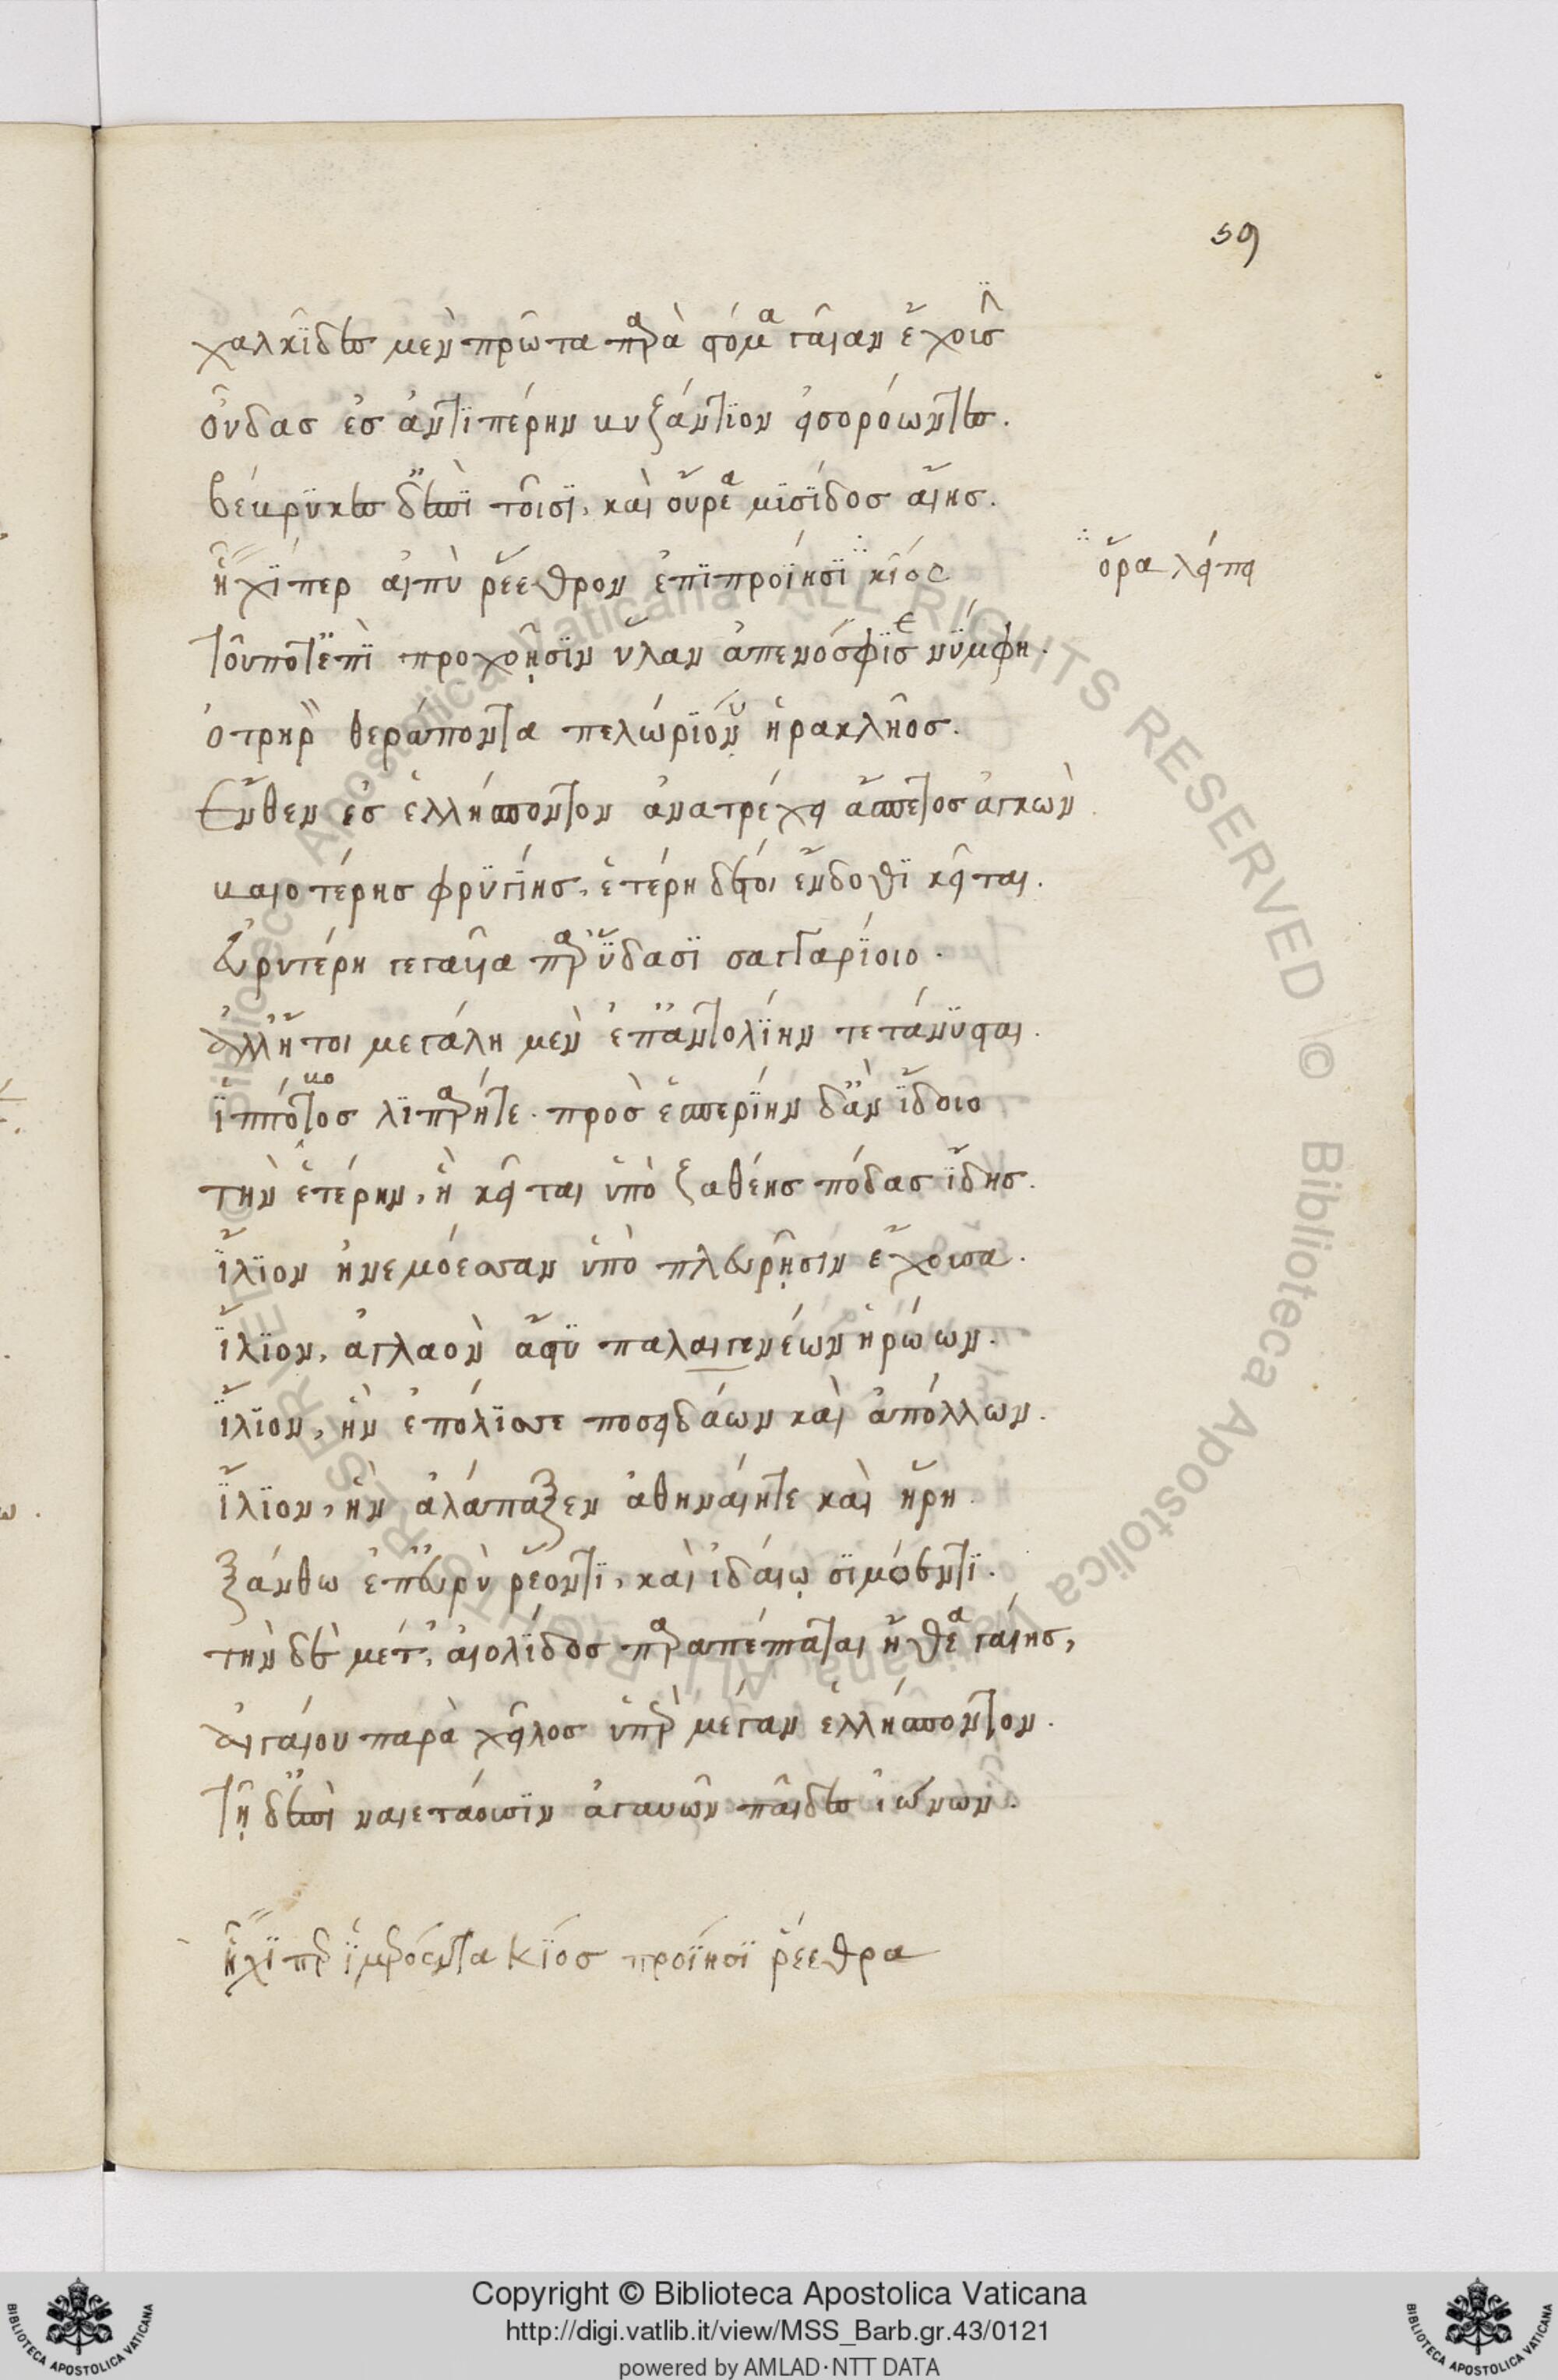 59
χαλκίδες μὲν πρῶτα παρὰ στόμα γαῖαν ἔχουσιν
οὖδας ἐς ἀντιπέρην βυζάντιον εἰσορόωντες.
βέβρυκες δ' ἐπὶ τοῖσι, καὶ οὔρεα μυσίδος αἴης.
ἧχί περ αἰπὺ ῥέεθρον ἐπιπροΐησι κίος
ὅρα λείπει
τοῦ ποτ' ἐπὶ προχοῇσιν ὕλαν ἀπενόσφισε νύμφη.
ὀτρηρὸν θεράποντα πελωρίου ἡρακλῆος.
ἔνθεν ἐς ἑλλήσποντον ἀνατρέχει ἄσπετος ἀγκὼν
βαιοτέρης φρυγίης, ἑτέρη δέ οἱ ἔνδοθι κεῖται.
εὐρυτέρη γεγαυῖα παρ' ὕδασι σαγγαρίοιο.
ἀλλ' ἤτοι μεγάλη μὲν ἐπ' ἀντολίην τετάνυσται.
ἱππόβοτος λιπαρή τε. πρὸς ἑσπερίην δ' ἂν ἴδοιο
τὴν ἑτέρην, ἣ κεῖται ὑπὸ ζαθέης πόδας ἴδης.
ἴλιον ἠνεμόεσσαν ὑπὸ πλευρῇσιν ἔχουσα.
ἴλιον, ἀγλαὸν ἄστυ παλαιγενέων ἡρώων.
ἴλιον, ἣν ἐπόλισσε ποσειδάων καὶ ἀπόλλων.
ἴλιον, ἣν ἀλάπαξεν ἀθηναίη τε καὶ ἥρη.
ξάνθω ἐπ' εὐρὺ ῥέοντι, καὶ ἰδαίῳ σιμόεντι.
τὴν δὲ μέτ', αἰολίδος παραπέπταται ἤθεα γαίης,
αἰγαίου παρὰ χεῖλος ὑπὲρ μέγαν ἑλλήσποντον.
τῇ δ' ἐπὶ ναιετάουσιν ἀγαυῶν παῖδες ἰώνων.
ἧχί περ ἱμερόεντα κίος προΐησι ῥέεθρα
Copyright © Biblioteca Apostolica Vaticana
http://digi.vatlib.it/view/MSS_Barb.gr.43/0121
powered by AMLAD·NTT DATA